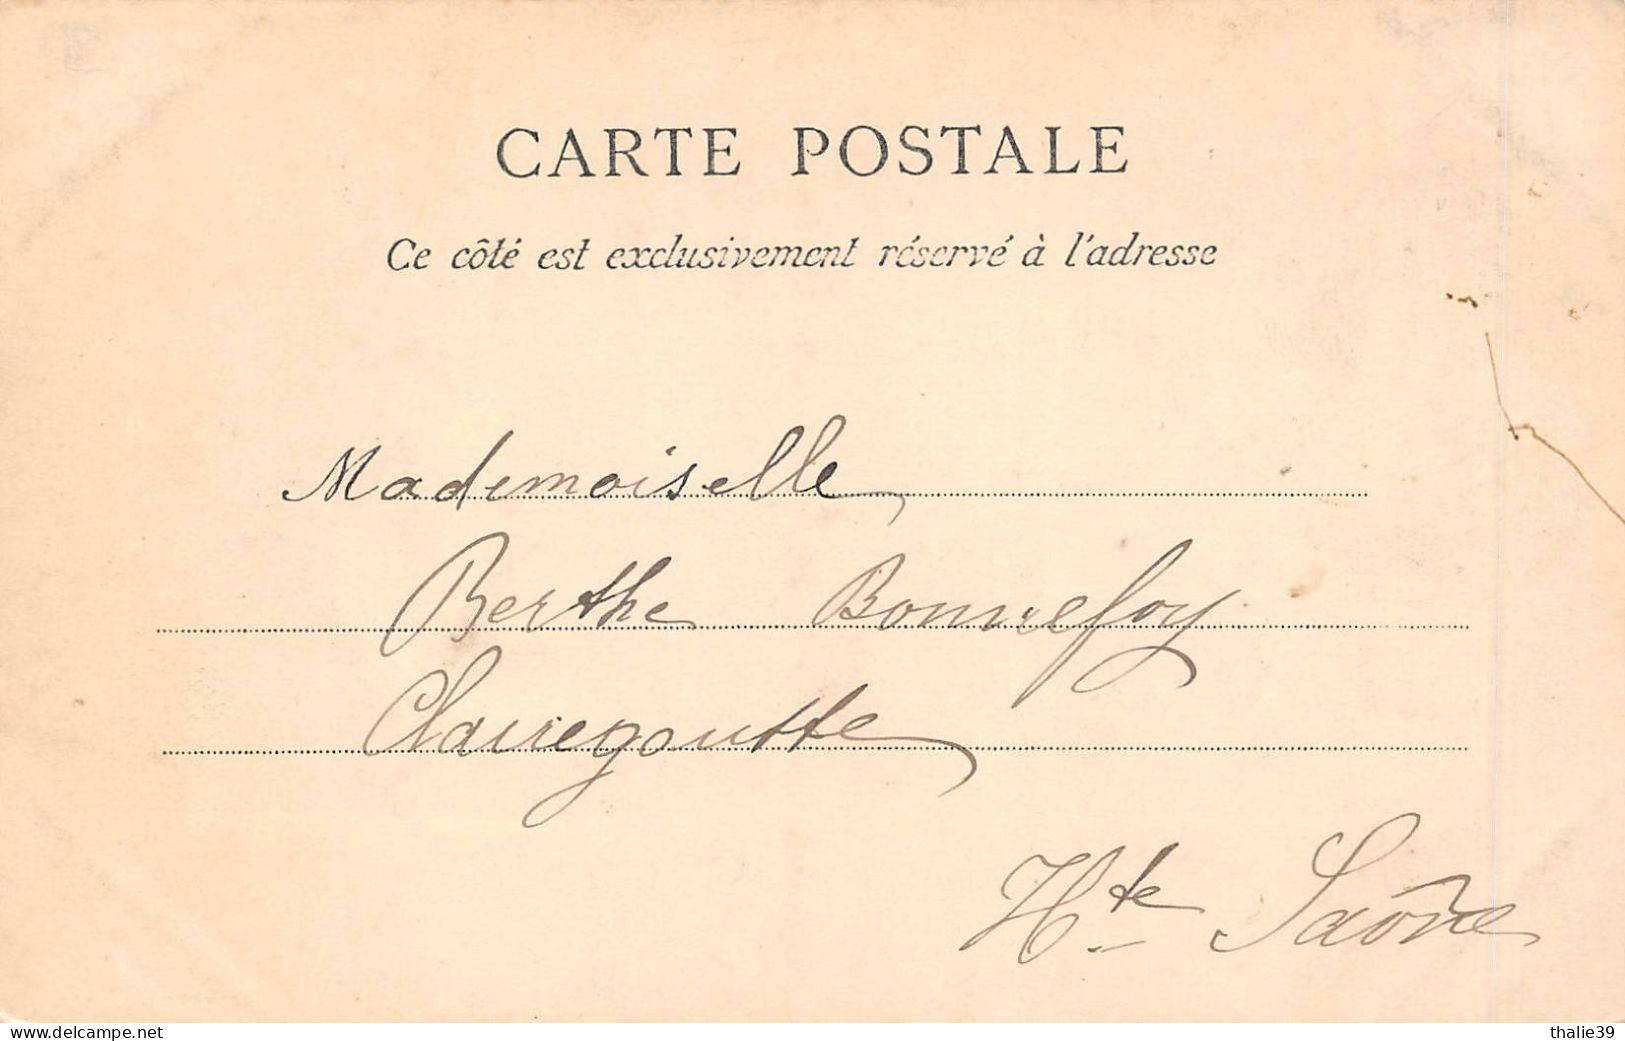 CARTE POSTALE
Ce côté est exclusivement réservé à l'adresse
Mademoiselle
Berthe Bonnefoy
Clairegoutte
Hte Saône
www.delcampe.net
thalie39